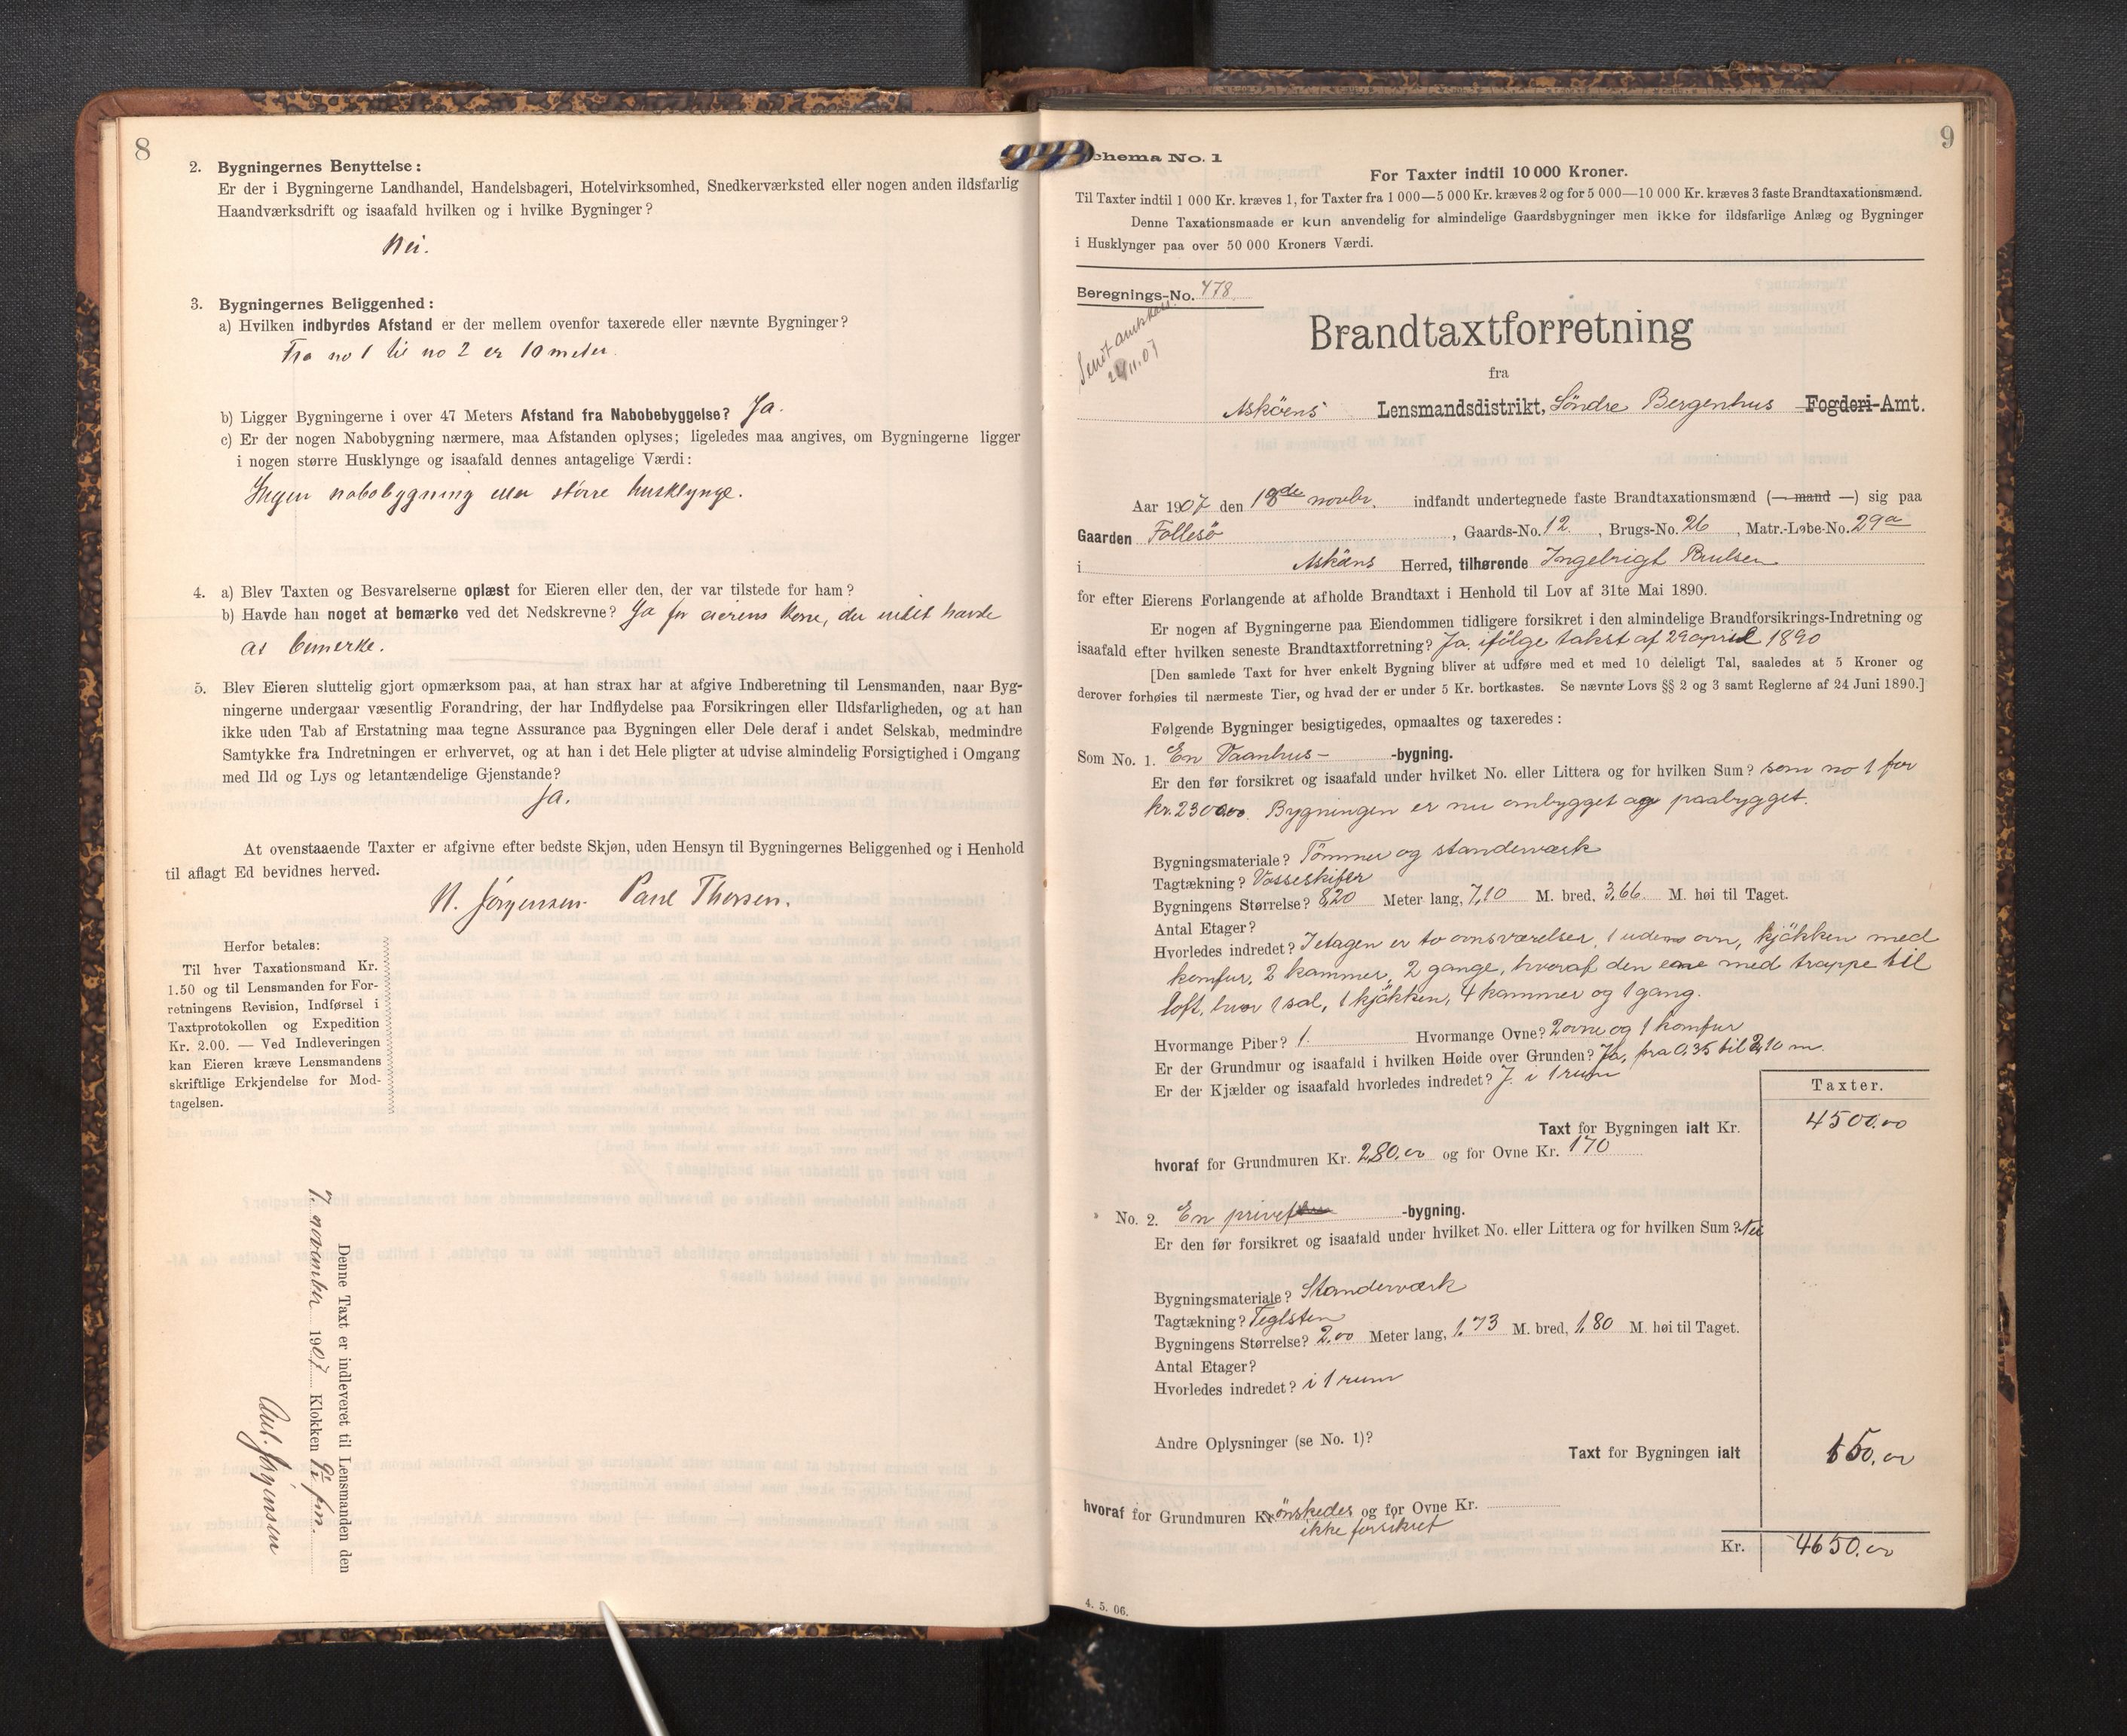 8
2. Bygningernes Benyttelse:
Er der i Bygningerne Landhandel, Handelsbageri, Hotelvirksomhed, Snedkerværksted eller nogen anden ildsfarlig
Haandværksdrift og isaafald hvilken og i hvilke Bygninger?
Nei.
3. Bygningernes Beliggenhed:
a) Hvilken indbyrdes Afstand er der mellem ovenfor taxerede eller nævnte Bygninger?
Fra no 1 til no 2 er 10 meter.
b) Ligger Bygningerne i over 47 Meters Afstand fra Nabobebyggelse? Ja.
c) Er der nogen Nabobygning nærmere, maa Afstanden oplyses; ligeledes maa angives, om Bygningerne ligger
i nogen større Husklynge og isaafald dennes antagelige Værdi:
Ingen nabobygning eller större husklynge.
4. a) Blev Taxten og Besvarelserne oplæst for Eieren eller den, der var tilstede for ham?
b) Havde han noget at bemærke ved det Nedskrevne? Ja for eierens kone, der intet havde
at bemerke.
5. Blev Eieren sluttelig gjort opmærksom paa, at han strax har at afgive Indberetning til Lensmanden, naar Byg-
ningerne undergaar væsentlig Forandring, der har Indflydelse paa Forsikringen eller Ildsfarligheden, og at han
ikke uden Tab af Erstatning maa tegne Assurance paa Bygningen eller Dele deraf i andet Selskab, medmindre
Samtykke fra Indretningen er erhvervet, og at han i det Hele pligter at udvise almindelig Forsigtighed i Omgang
med Ild og Lys og letantændelige Gjenstande?
Ja.
At ovenstaaende Taxter er afgivne efter bedste Skjøn, uden Hensyn til Bygningernes Beliggenhed og i Henhold
til aflagt Ed bevidnes herved.
N. Jörgensen. Paul Thorsen.
Herfor betales:
Til hver Taxationsmand Kr.
1.50 og til Lensmanden for For-
retningens Revision, Indførsel i
Taxtprotokollen og Expedition
Kr. 2.00. — Ved Indleveringen
kan Eieren kræve Lensmandens
skriftlige Erkjendelse for Mod-
tagelsen.
Denne Taxt er indleveret til Lensmanden den
7 november 1907 Klokken fm.
Jörgensen
9
Schema No. 1
For Taxter indtil 10 000 Kroner.
Til Taxter indtil 1 000 Kr. kræves 1, for Taxter fra 1 000—5 000 Kr. kræves 2 og for 5 000—10 000 Kr. kræves 3 faste Brandtaxationsmænd.
Denne Taxationsmaade er kun anvendelig for almindelige Gaardsbygninger men ikke for ildsfarlige Anlæg og Bygninger
i Husklynger paa over 50 000 Kroners Værdi.
Beregnings-No. 478.
Sendt
11.07
Brandtaxtforretning
fra
Asköens Lensmandsdistrikt, Söndre Bergenhus Fogderi-Amt.
Aar 1907 den 18de novbr. indfandt undertegnede faste Brandtaxationsmænd (— mand —) sig paa
Gaarden Follesö, Gaards-No. 12, Brugs-No. 26, Matr.-Løbe-No. 29a
i Asköens Herred, tilhørende Ingebrigt Paulsen
for efter Eierens Forlangende at afholde Brandtaxt i Henhold til Lov af 31te Mai 1890.
Er nogen af Bygningerne paa Eiendommen tidligere forsikret i den almindelige Brandforsikrings-Indretning og
isaafald efter hvilken seneste Brandtaxtforretning? Ja. ifölge takst af 29 april 1890
[Den samlede Taxt for hver enkelt Bygning bliver at udføre med et med 10 deleligt Tal, saaledes at 5 Kroner og
derover forhøies til nærmeste Tier, og hvad der er under 5 Kr. bortkastes. Se nævnte Lovs §§ 2 og 3 samt Reglerne af 24 Juni 1890.]
Følgende Bygninger besigtigedes, opmaaltes og taxeredes:
Som No. 1. En Vaanhus- -bygning.
Er den før forsikret og isaafald under hvilket No. eller Littera og for hvilken Sum? som no 1 for
kr. 2300.00. Bygningen er nu ombygget og paabygget.
Bygningsmateriale? Tömmer og standerværk
Tagtækning? Vosseskifer
Bygningens Størrelse? 8,20 Meter lang, 7,10 M. bred, 3,66 M. høi til Taget.
Antal Etager?
Hvorledes indredet? I etagen er to ovnsværelser, 1 uden ovn, kjökken med
komfur, 2 kammer, 2 gange, hvoraf den ene med trappe til
loft, hvor 1 sal, 1 kjökken, 4 kammer og 1 gang.
Hvormange Piber? 1. Hvormange Ovne? 2 ovne og 1 komfur
Er der Grundmur og isaafald i hvilken Høide over Grunden? Ja, fra 0,35 til 2,10 m.
Er der Kjælder og isaafald hvorledes indredet? J. i 1 rum
Taxter.
Taxt for Bygningen ialt Kr. 4500.00
hvoraf for Grundmuren Kr. 280.00 og for Ovne Kr. 170
No. 2. En privet -bygning.
Er den før forsikret og isaafald under hvilket No. eller Littera og for hvilken Sum? Nei
Bygningsmateriale? Standerværk
Tagtækning? Teglsten
Bygningens Størrelse? 2.00 Meter lang, 1,73 M. bred, 1,80 M. høi til Taget.
Antal Etager?
Hvorledes indredet? i 1 rum
Andre Oplysninger (se No. 1)?
Taxt for Bygningen ialt 150.00
hvoraf for Grundmuren Kr. önskedes og for Ovne Kr.
ikke forsikret
Kr. 4650.00
4. 5. 06.